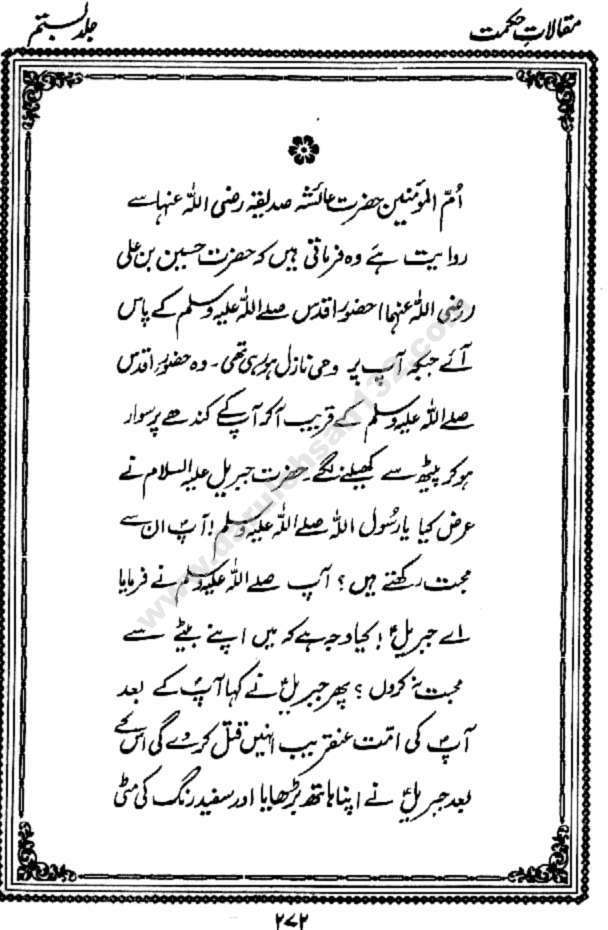 مقالاتِ حکمت
جلد بستم
اُمّ المؤمنین حضرت عائشہ صدیقہ رضی اللّٰہ عنہا سے
روایت ہے وہ فرماتی ہیں کہ حضرت حسین بن علی
رضی اللّٰہ عنہما حضورِ اقدس صلے اللّٰہ علیہ وسلم کے پاس
آئے جبکہ آپ پر وحی نازل ہو رہی تھی۔ وہ حضورِ اقدس
صلے اللّٰہ علیہ وسلم کے قریب آکر آپ کے کندھے پر سوار
ہو کر پیٹھ سے کھیلنے لگے۔ حضرت جبریل علیہ السلام نے
عرض کیا یا رسُول اللّٰہ صلے اللّٰہ علیہ وسلم! آپؐ ان سے
محبت رکھتے ہیں؟ آپ صلے اللّٰہ علیہ وسلم نے فرمایا
اے جبریلؑ! کیا وجہ ہے کہ میں اپنے بیٹے سے
محبت نہ کروں؟ پھر جبریلؑ نے کہا آپؐ کے بعد
آپؐ کی امّت عنقریب انہیں قتل کر دے گی اس کے
بعد جبریلؑ نے اپنا ہاتھ بڑھایا اور سفید رنگ کی مٹی
۲۷۲